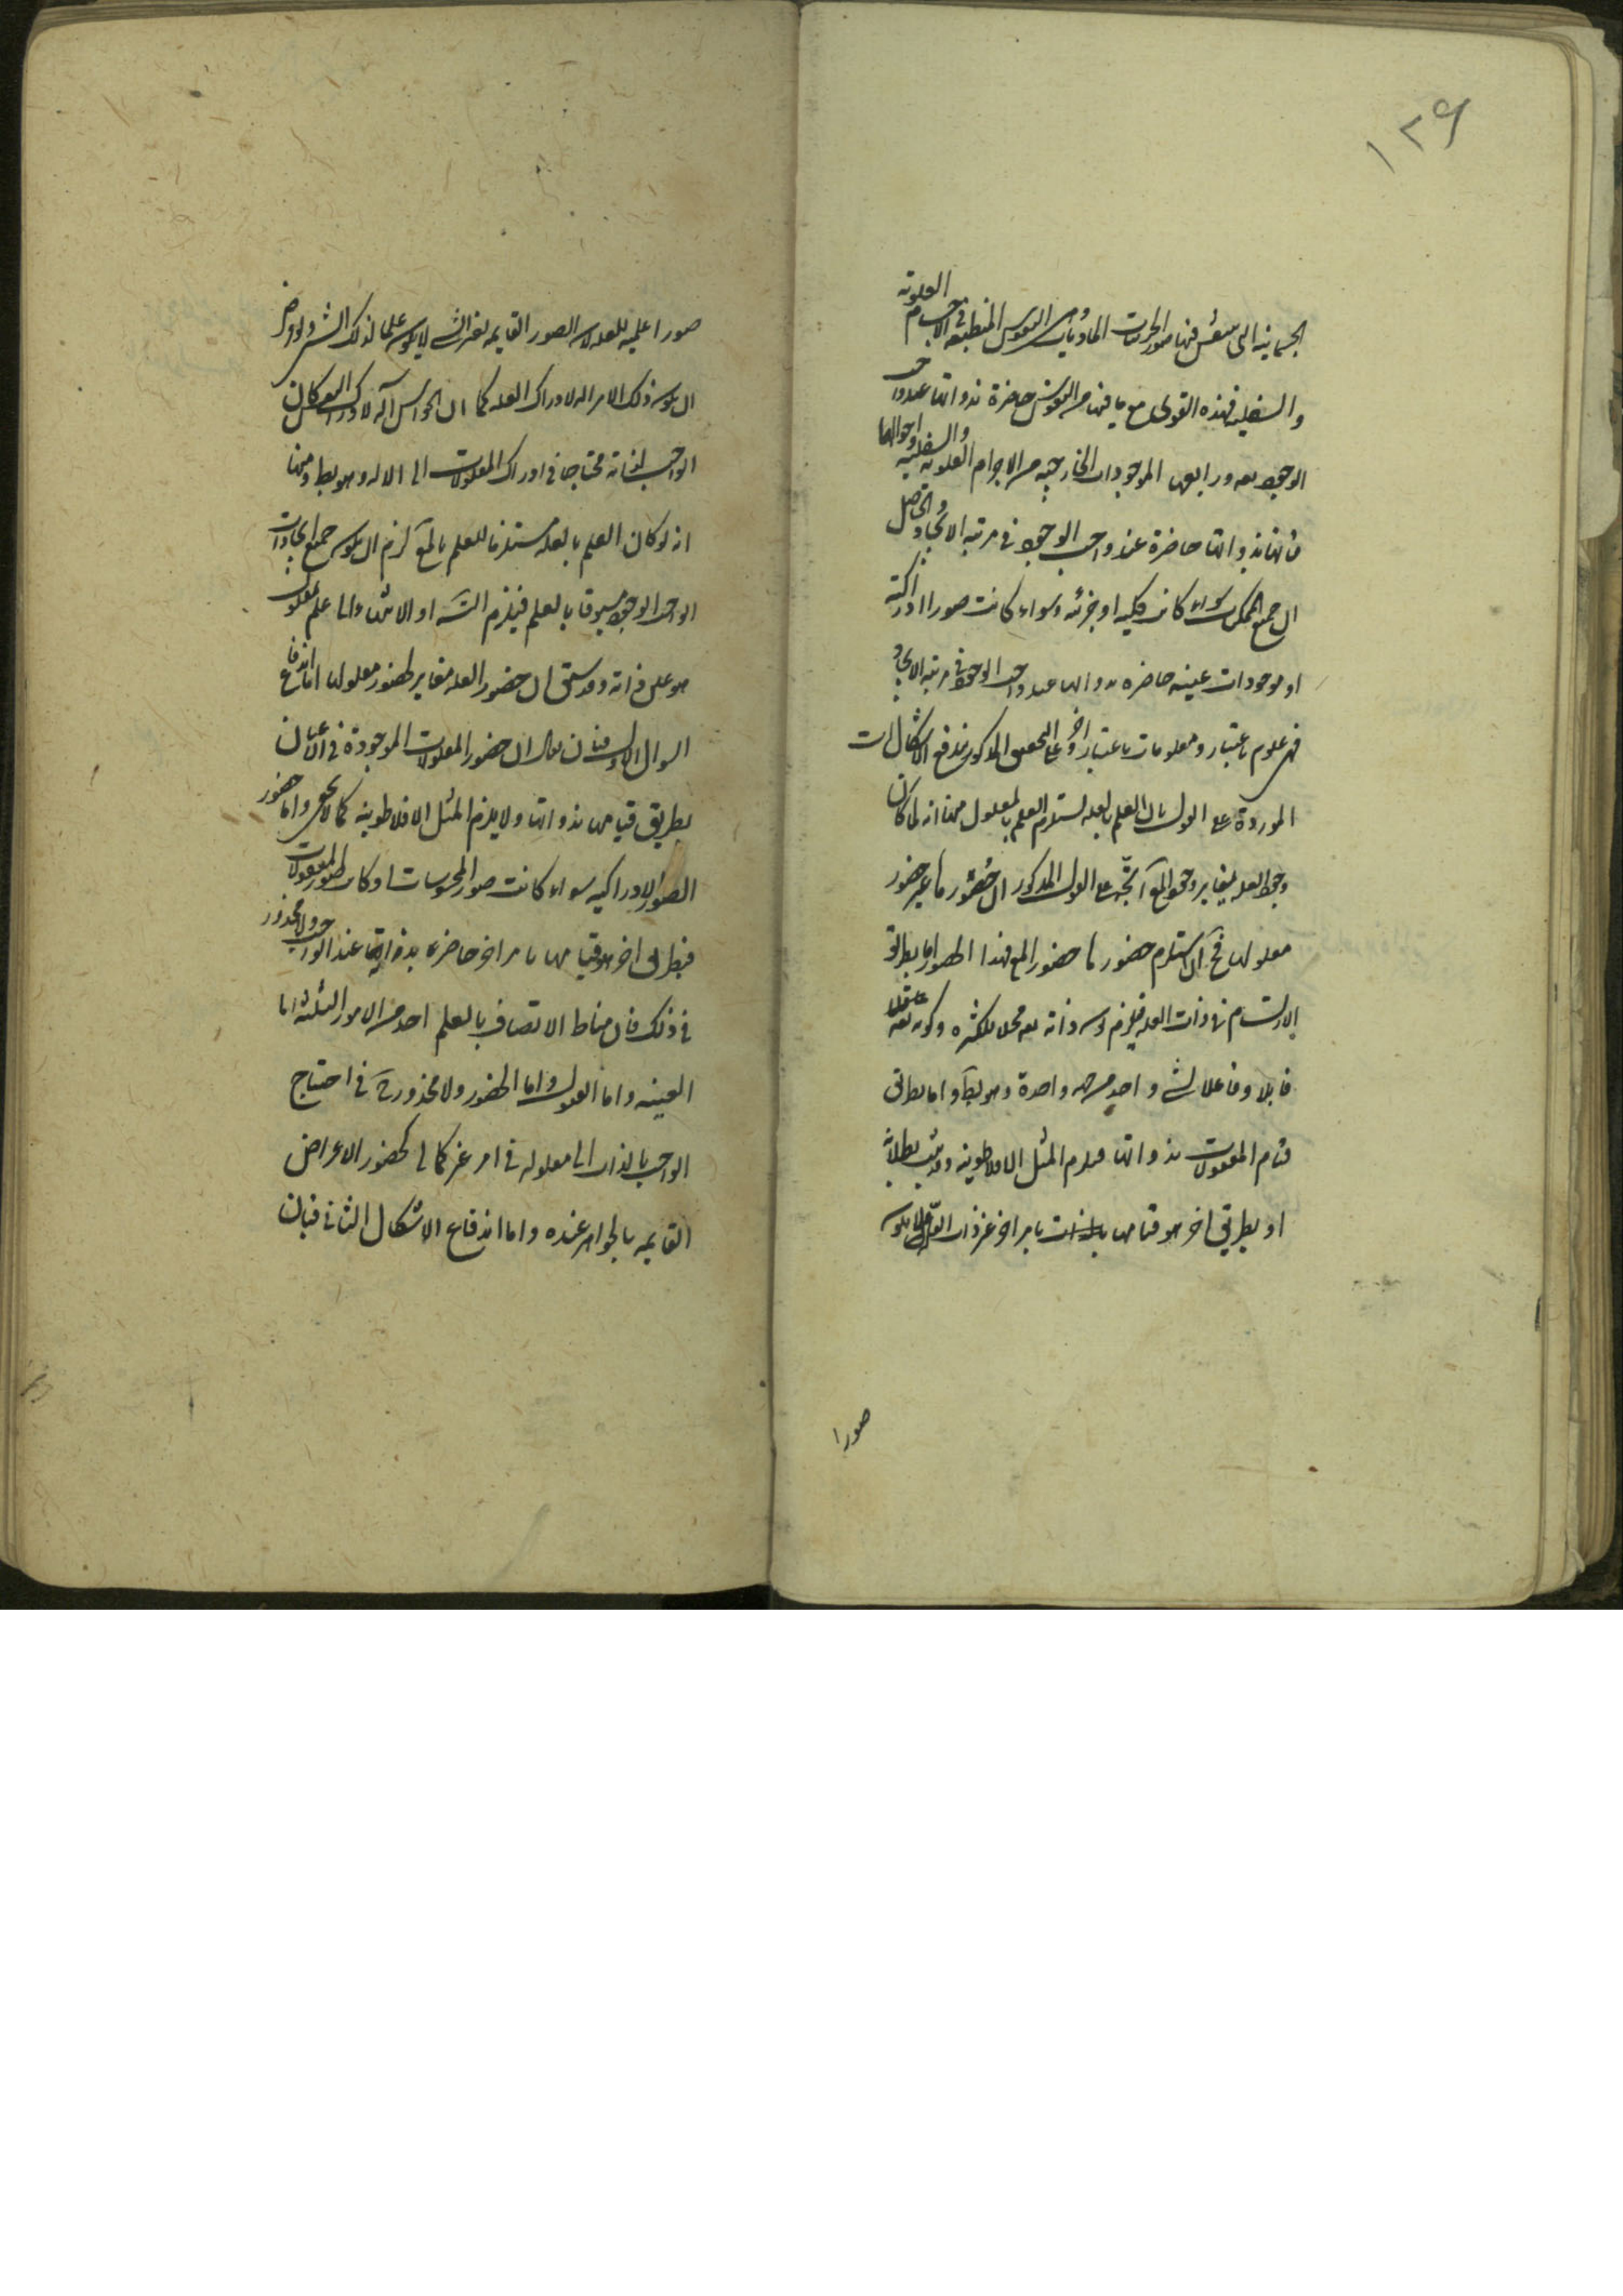 ١٢٩
الجسمانية التى ينتقش فيها صور الجزئيات المادية وهى النفوس المنطبعة فى الاجسام العلوية
والسفلية فهذه القوى مع ما فيها من النقوش حاضرة بذواتها عند واجب
الوجود ورابعها الموجودات الخارجية من الاجرام العلوية والسفلية واحوالها
فانها بذواتها حاضرة عند واجب الوجود فى مرتبة الايجاد والحاصل
ان جميع الممكنات سواء كانت كلية او جزئية وسواء كانت صورا ادراكية
او موجودات عينية حاضرة بذواتها عند واجب الوجود فى مرتبة الايجاد
فهى علوم باعتبار ومعلومات باعتبار اخر وعلى التحقيق المذكور يندفع الاشكالات
الموردة على القول بان العلم بالعلة يستلزم العلم بالمعلول منها انه لما كان
وجود العلة يغاير وجود المع اتجه على القول المذكور ان حضورها غير حضور
معلولها فح ان استلزم حضورها حضور المع فهذا الحضور اما بطريق
الارتسام فى ذات العلة فيلزم كون ذاته تعه محلا للكثرة وكونه تعه
قابلا وفاعلا لشئ واحد من جهة واحدة وهو بط واما بطريق
قيام المعقولات بذواتها فيلزم المثل الافلاطونية وقد ثبت بطلانه
او بطريق اخر هو قيامها بامر اخر غير ذات العلة فلا يكون
صورا
صورا علمية للعلة لان الصور القايمة بغير الشئ لا يكون علما لذلك الشئ ولو فرض
ان يكون ذلك الامر الة لادراك العلة كما ان الحواس آلة لادراك النفس لكان
الواجب لذاته محتاجا فى ادراك المعقولات الى الالة وهو بط ومنها
انه لو كان العلم بالعلة مستلزما للعلم بالمع لزم ان يكون جميع ايجادات
الواجب الوجود مسبوقا بالعلم فيلزم التسه او الانتهاء الى علم بمعلول
هو عين ذاته وقد سبق ان حضور العلة مغاير لحضور معلولها اما اندفاع
السؤال الاول فبان يقال ان حضور المعلولات الموجودة فى الاعيان
بطريق قيامها بذواتها ولا يلزم المثل الافلاطونية كما لا يخفى واما حضور
الصور الادراكية سواء كانت صور المحسوسات او كانت صور المعقولات
فبطريق اخر هو قيامها بامر اخر حاضرة بذواتها عند الواجب ولا محذور
فى ذلك فان مناط الاتصاف بالعلم احد من الامور الثلثة اما
العينية واما الحلول واما الحضور ولا محذور ح فى احتياج
الواجب بالذات الى معلوله فى امر غير كمالى كحضور الاعراض
القايمة بالجواهر عنده واما اندفاع الاشكال الثانى فبان